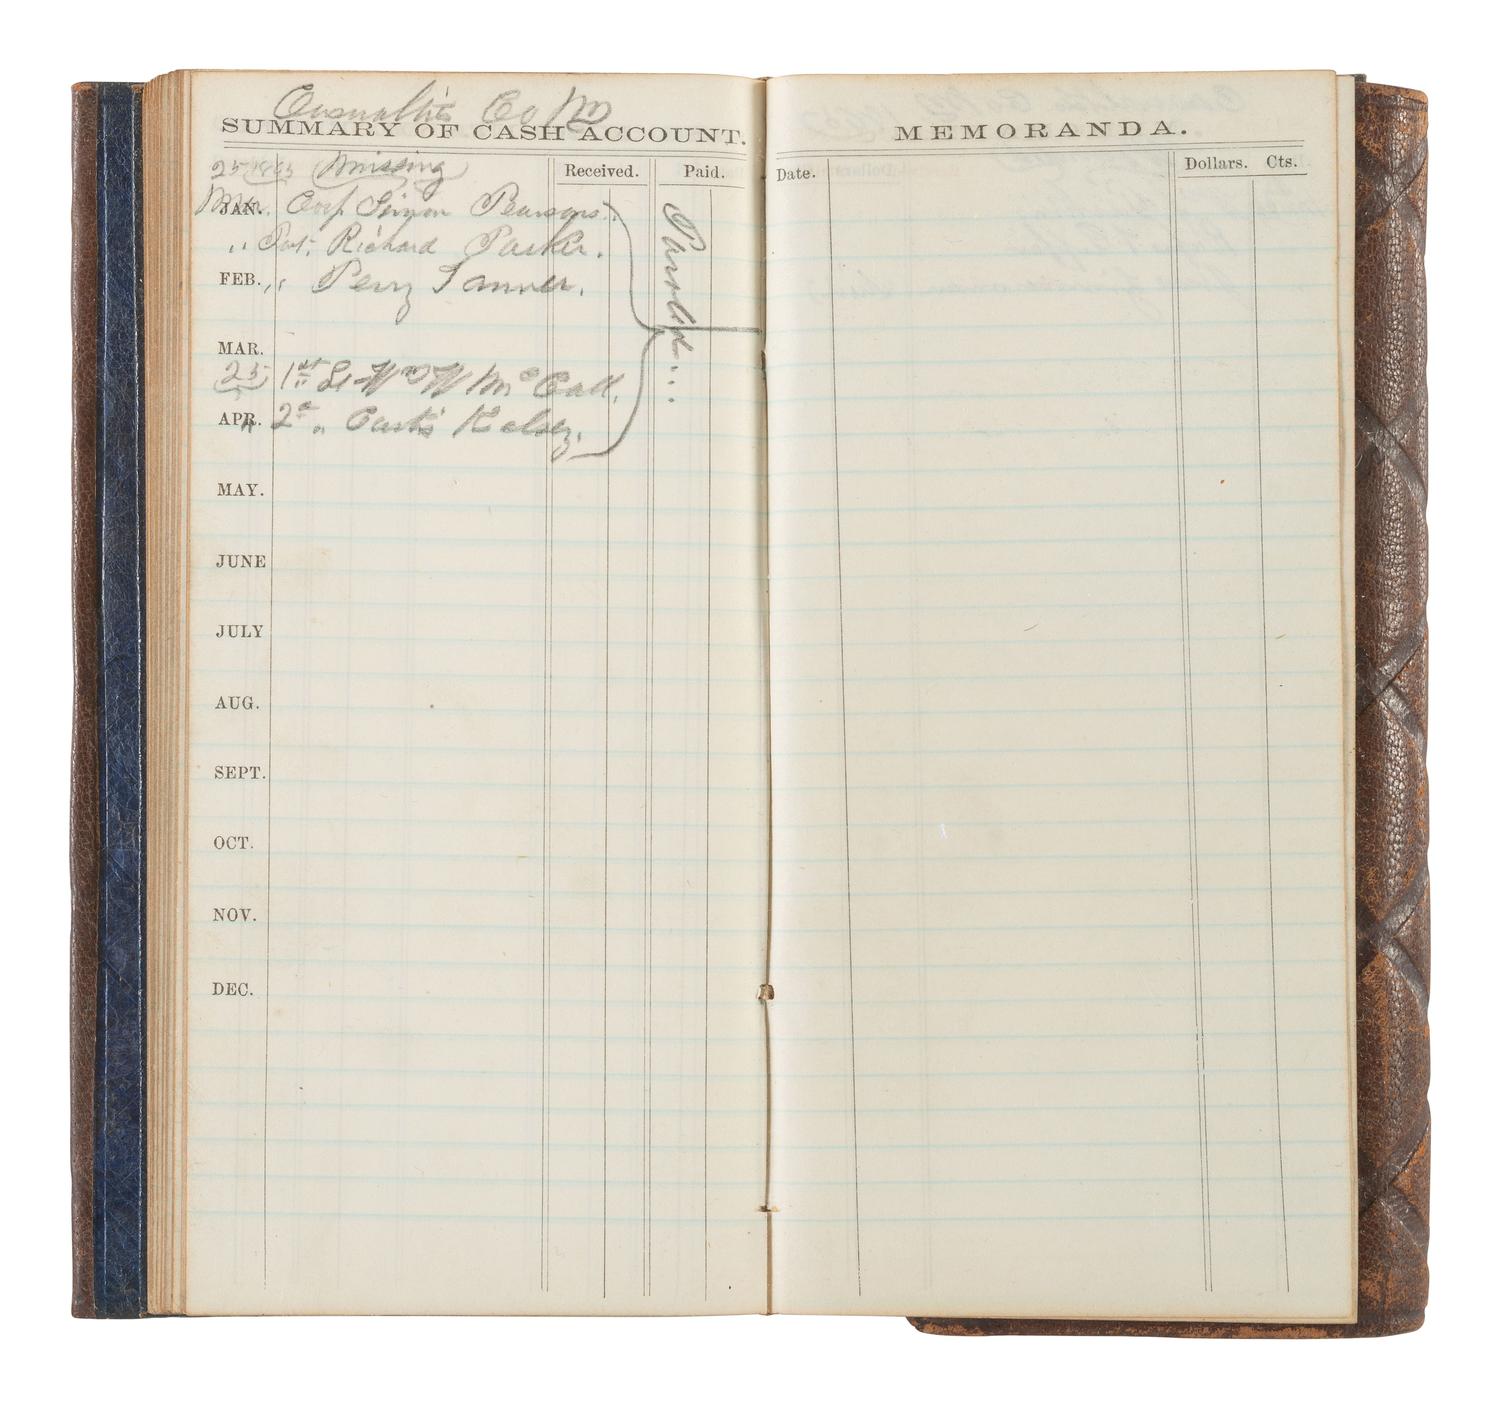 Casualtis Co M
SUMMARY OF CASH ACCOUNT.
25 1865 Missing
Received. Paid.
Mar. JAN. Corp. Simon Pearsons.
" Pvt. Richard Parker.
FEB. " " Perry Tanner.
Paroled...
MAR.
25 1st Lt Wm W McCall.
APR. " 2d " Curtis Kelsey.
MAY.
JUNE
JULY
AUG.
SEPT.
OCT.
NOV.
DEC.
MEMORANDA.
Date. Dollars. Cts.